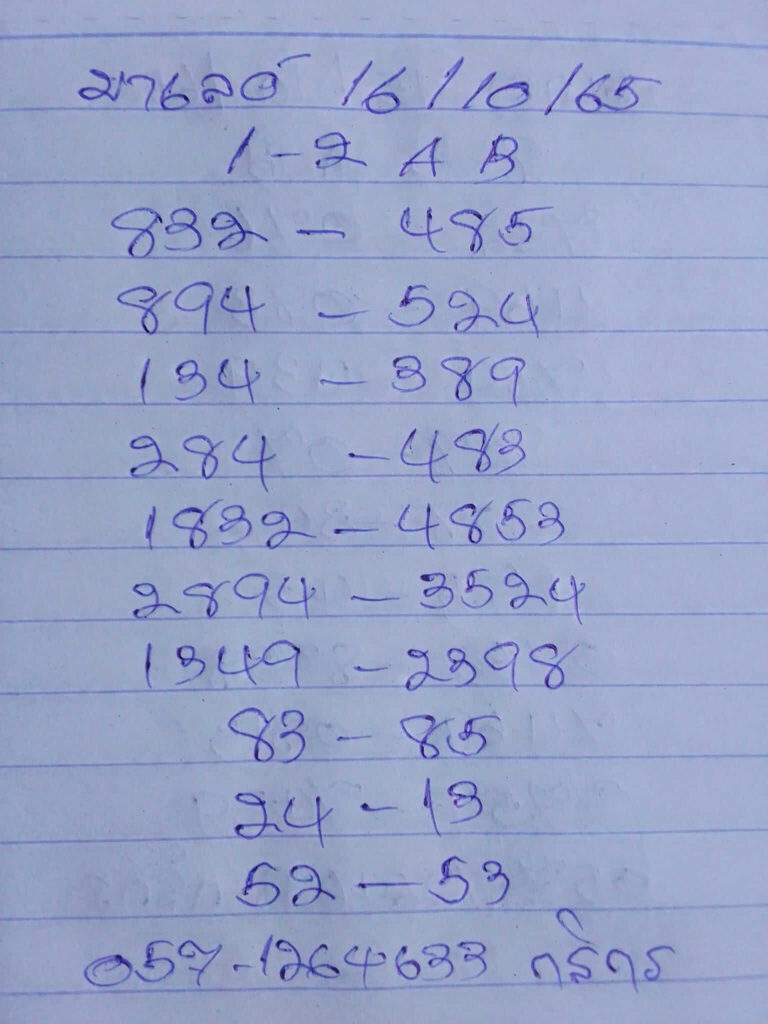 มาเลย์ 16/10/65
1-2 A B
832 - 485
894 - 524
134 - 389
284 - 483
1832 - 4853
2894 - 3524
1349 - 2398
83 - 85
24 - 13
52 - 53
057-1264633 กสิกร